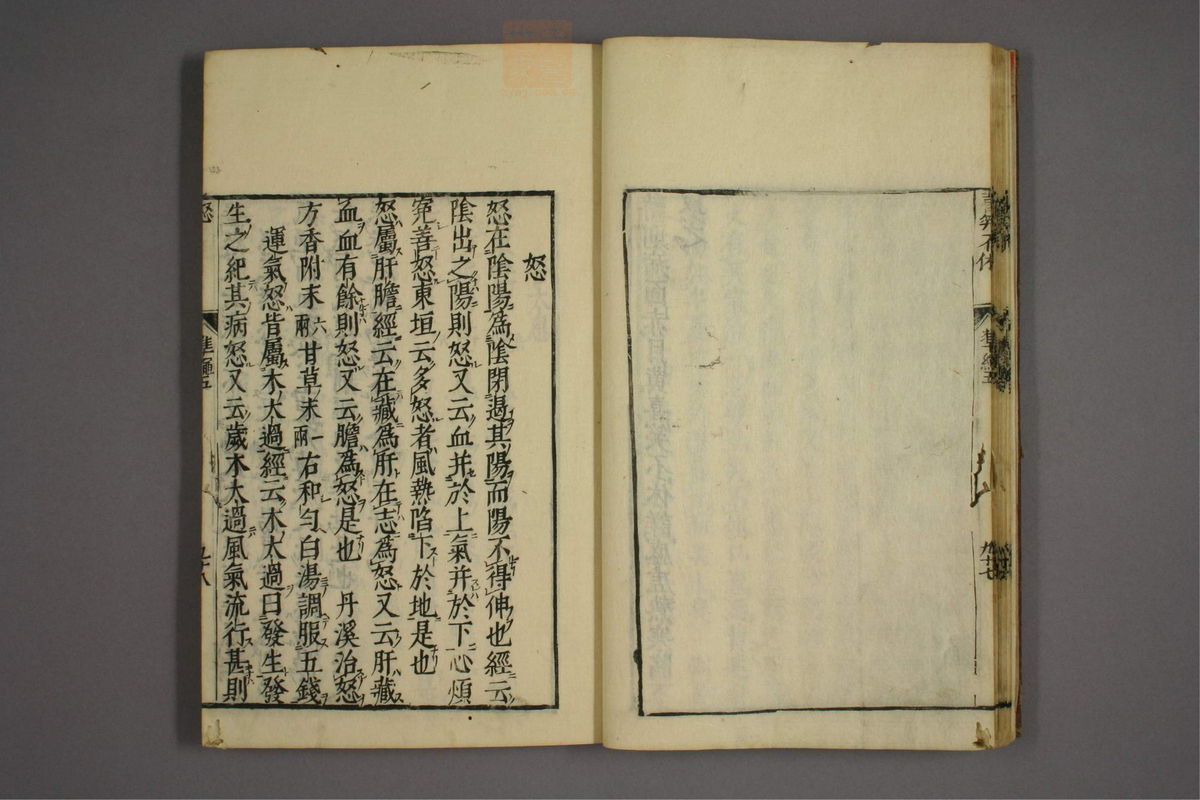 怒
怒在陰陽爲陰閉遏其陽而陽不得伸也經云
陰出之陽則怒又云血并於上氣并於下心煩
寃善怒東垣云多怒者風熱陷下於地是也
怒屬肝膽經云在藏爲肝在志爲怒又云肝藏
血血有餘則怒又云膽爲怒是也 丹溪治怒
方香附末六兩甘草末一兩右和勻白湯調服五錢
運氣怒皆屬木太過經云木太過曰發生發
生之紀其病怒又云歲木太過風氣流行甚則
怒
準繩五
九十八
準繩五
九十七